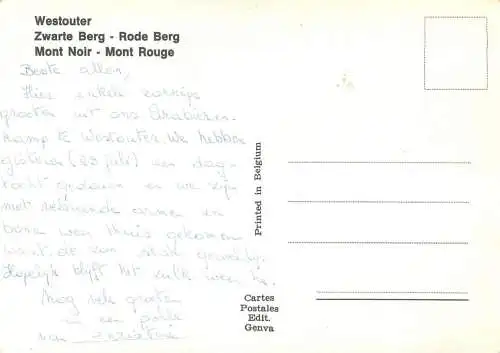 Westouter
Zwarte Berg - Rode Berg
Mont Noir - Mont Rouge
Beste allen,
Hier enkele
groeten uit ons
kamp te Westouter. We hebben
gisteren (23 juli) een dag-
tocht gedaan en we zijn
met armen en
benen weer thuis gekomen
want de zon
Hopelijk blijft het zulk weer
Nog vele groeten
en een
van
Printed in Belgium
Cartes
Postales
Edit.
Genva